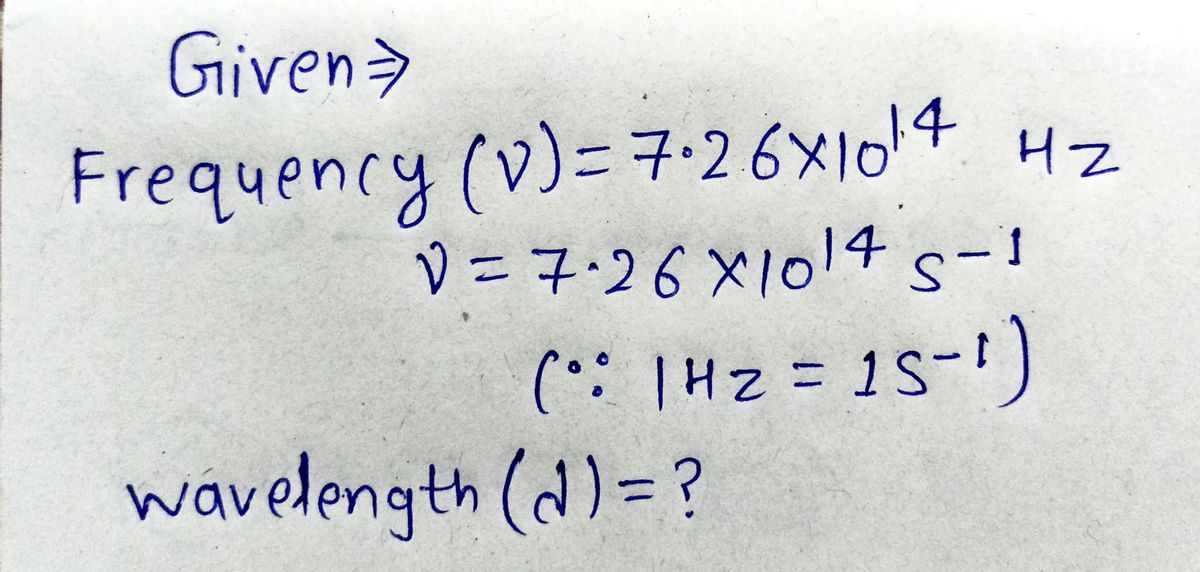 Given⇒
Frequency (ν) = 7.26×10¹⁴ Hz
ν = 7.26×10¹⁴ s⁻¹
(∵ 1Hz = 1s⁻¹)
wavelength (λ) = ?